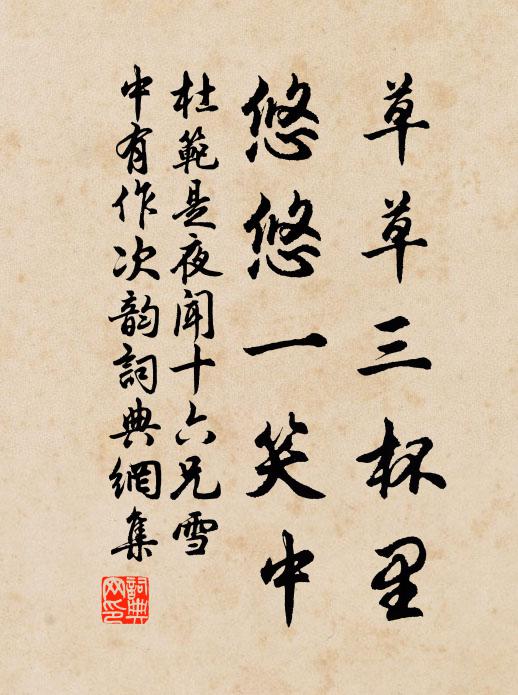 草草三杯里
悠悠一笑中
杜範是夜聞十六兄雪
中有作次韵詞典網集
詞典
网印